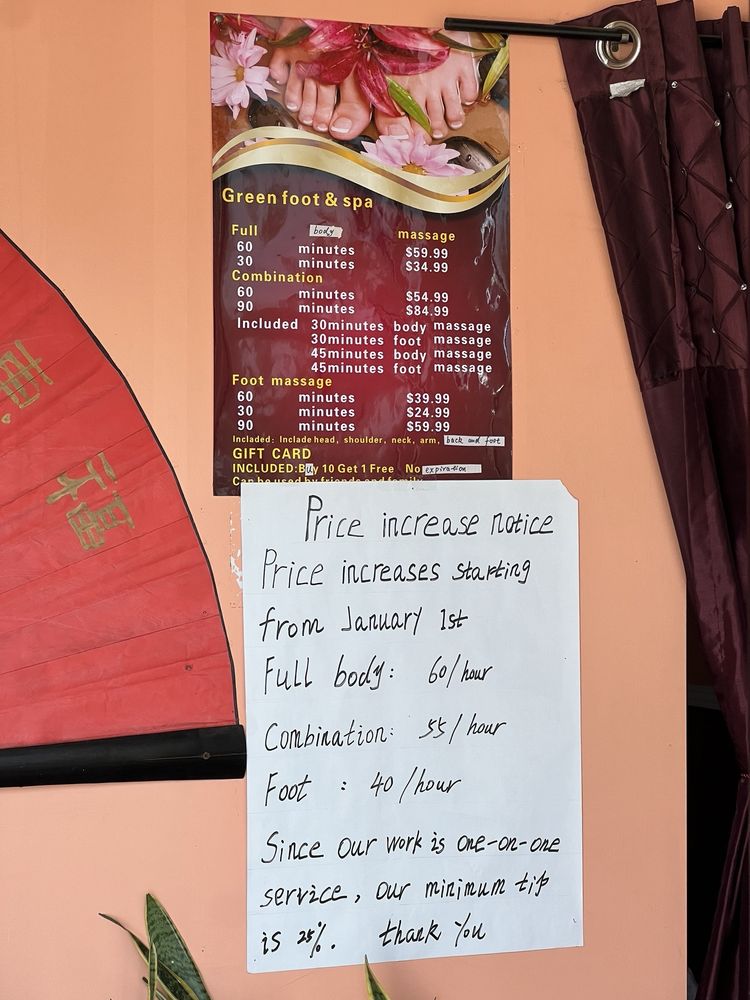 Green foot & spa
Full body massage
60 minutes $59.99
30 minutes $34.99
Combination
60 minutes $54.99
90 minutes $84.99
Included 30minutes body massage
30minutes foot massage
45minutes body massage
45minutes foot massage
Foot massage
60 minutes $39.99
30 minutes $24.99
90 minutes $59.99
Included: Include head, shoulder, neck, arm, back and foot
GIFT CARD
INCLUDED:Buy 10 Get 1 Free No expiration
Can be used by friends and family
Price increase notice
Price increases starting
from January 1st
Full body: 60/hour
Combination: 55/hour
Foot : 40/hour
Since our work is one-on-one
service, our minimum tip
is 25%. thank you